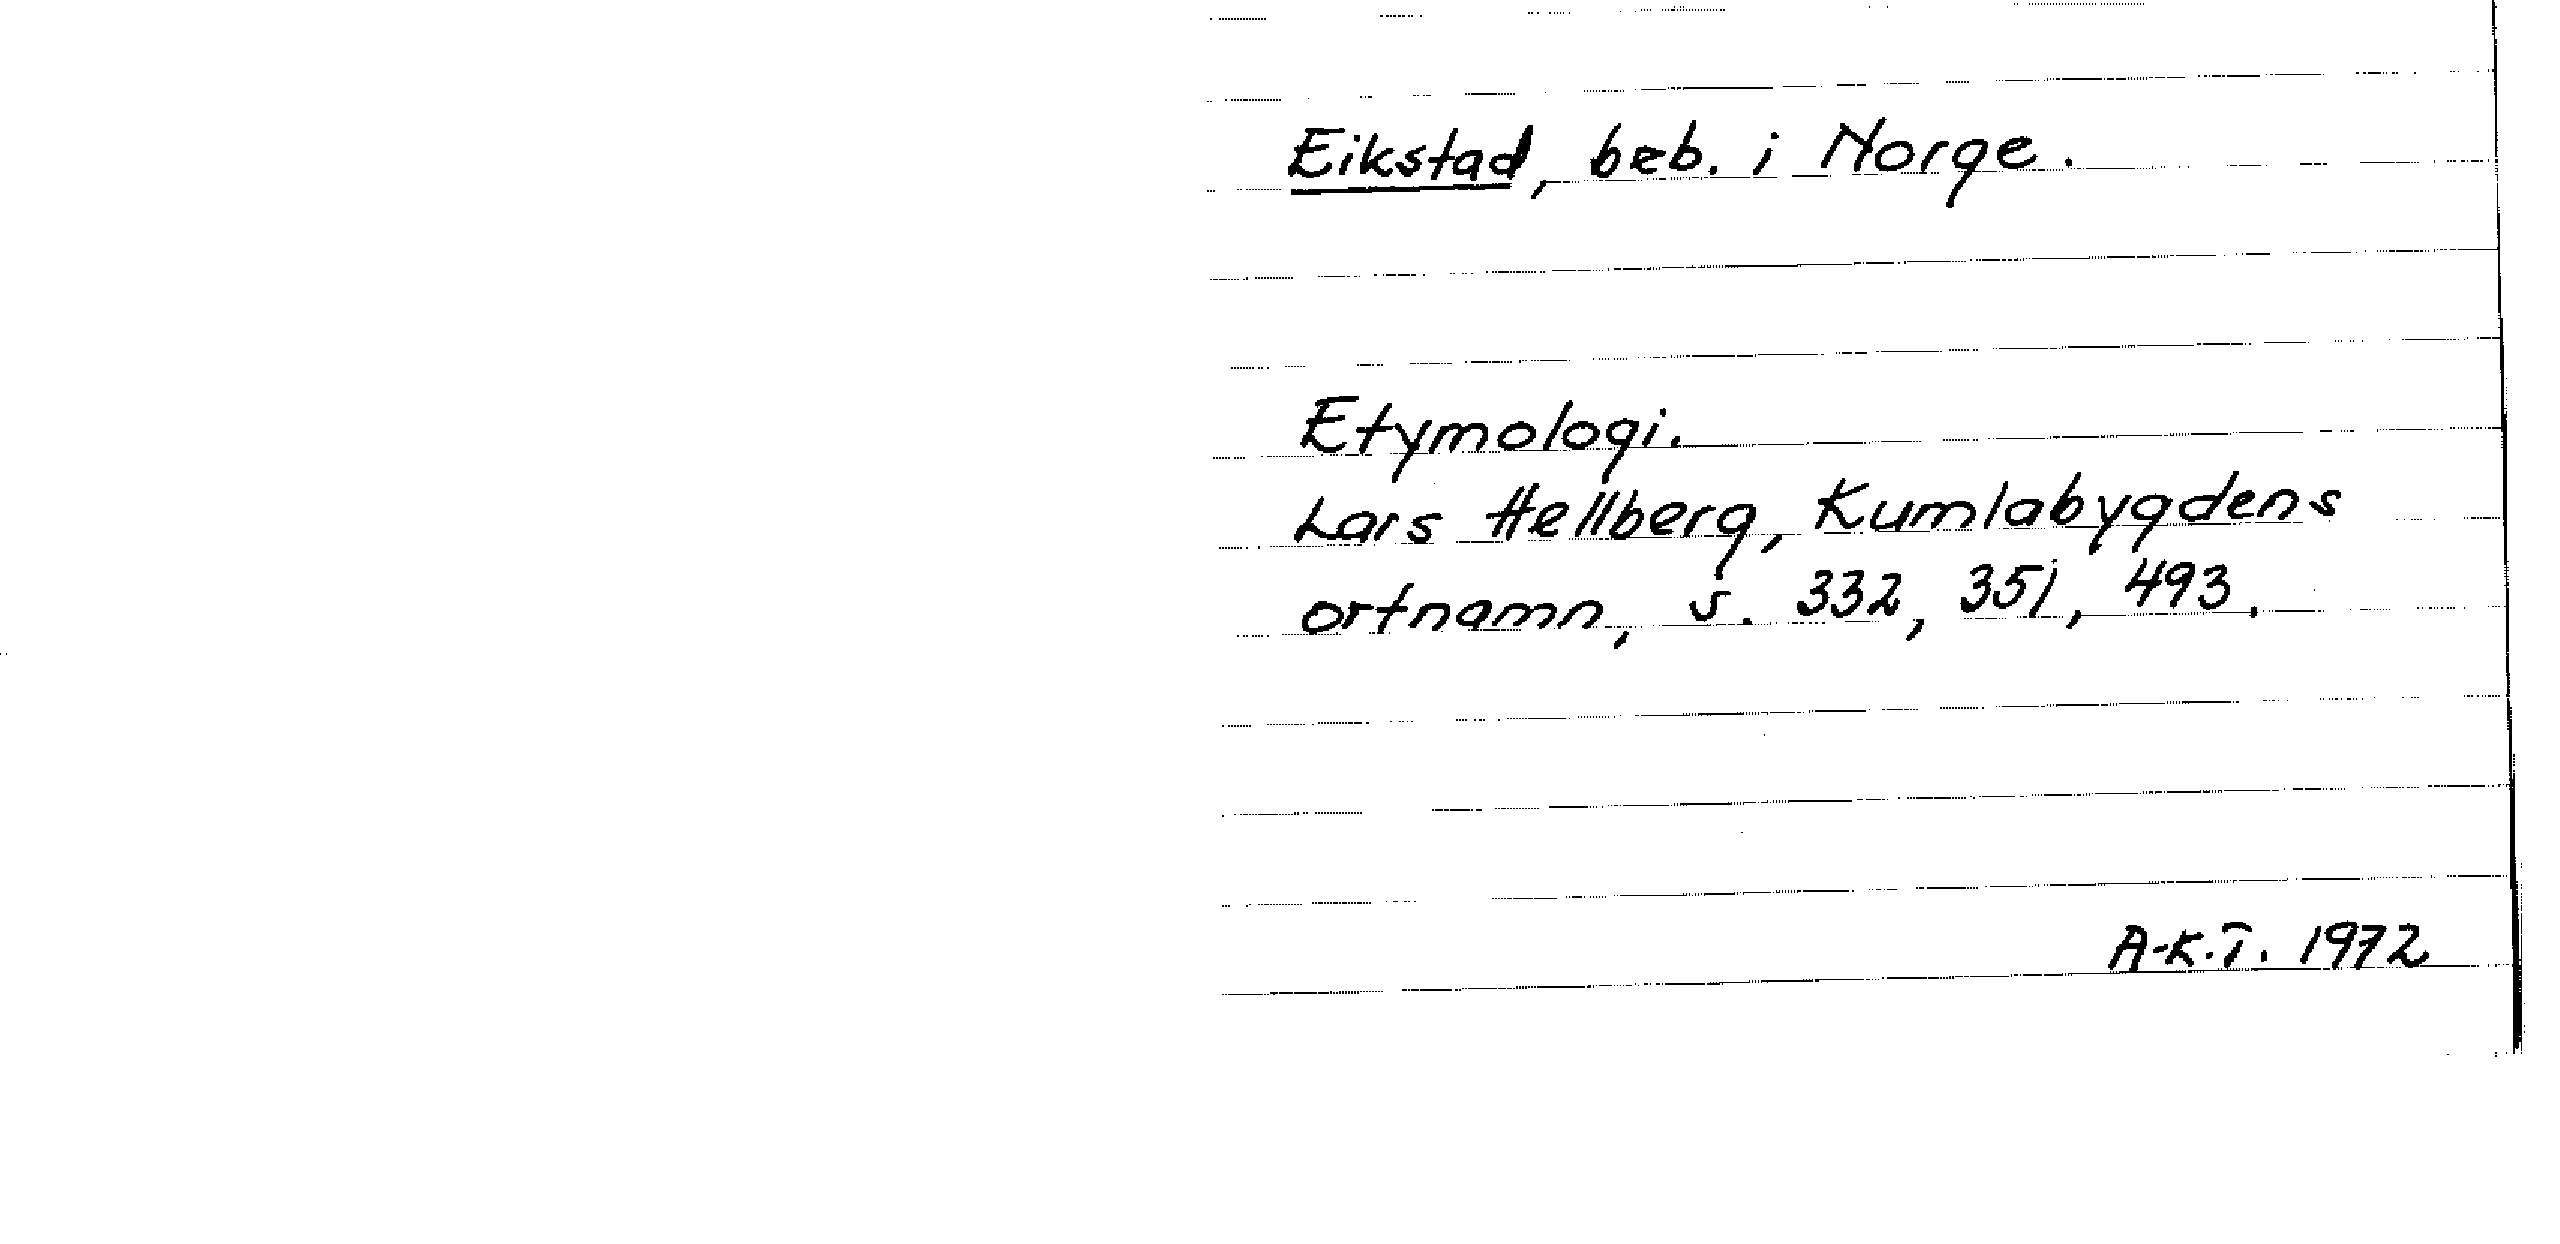 Eikstad, beb. i Norge.
Etymologi.
Lars Hellberg, Kumlabygdens
ortnamn, s. 332, 351, 493.
A-K.T. 1972